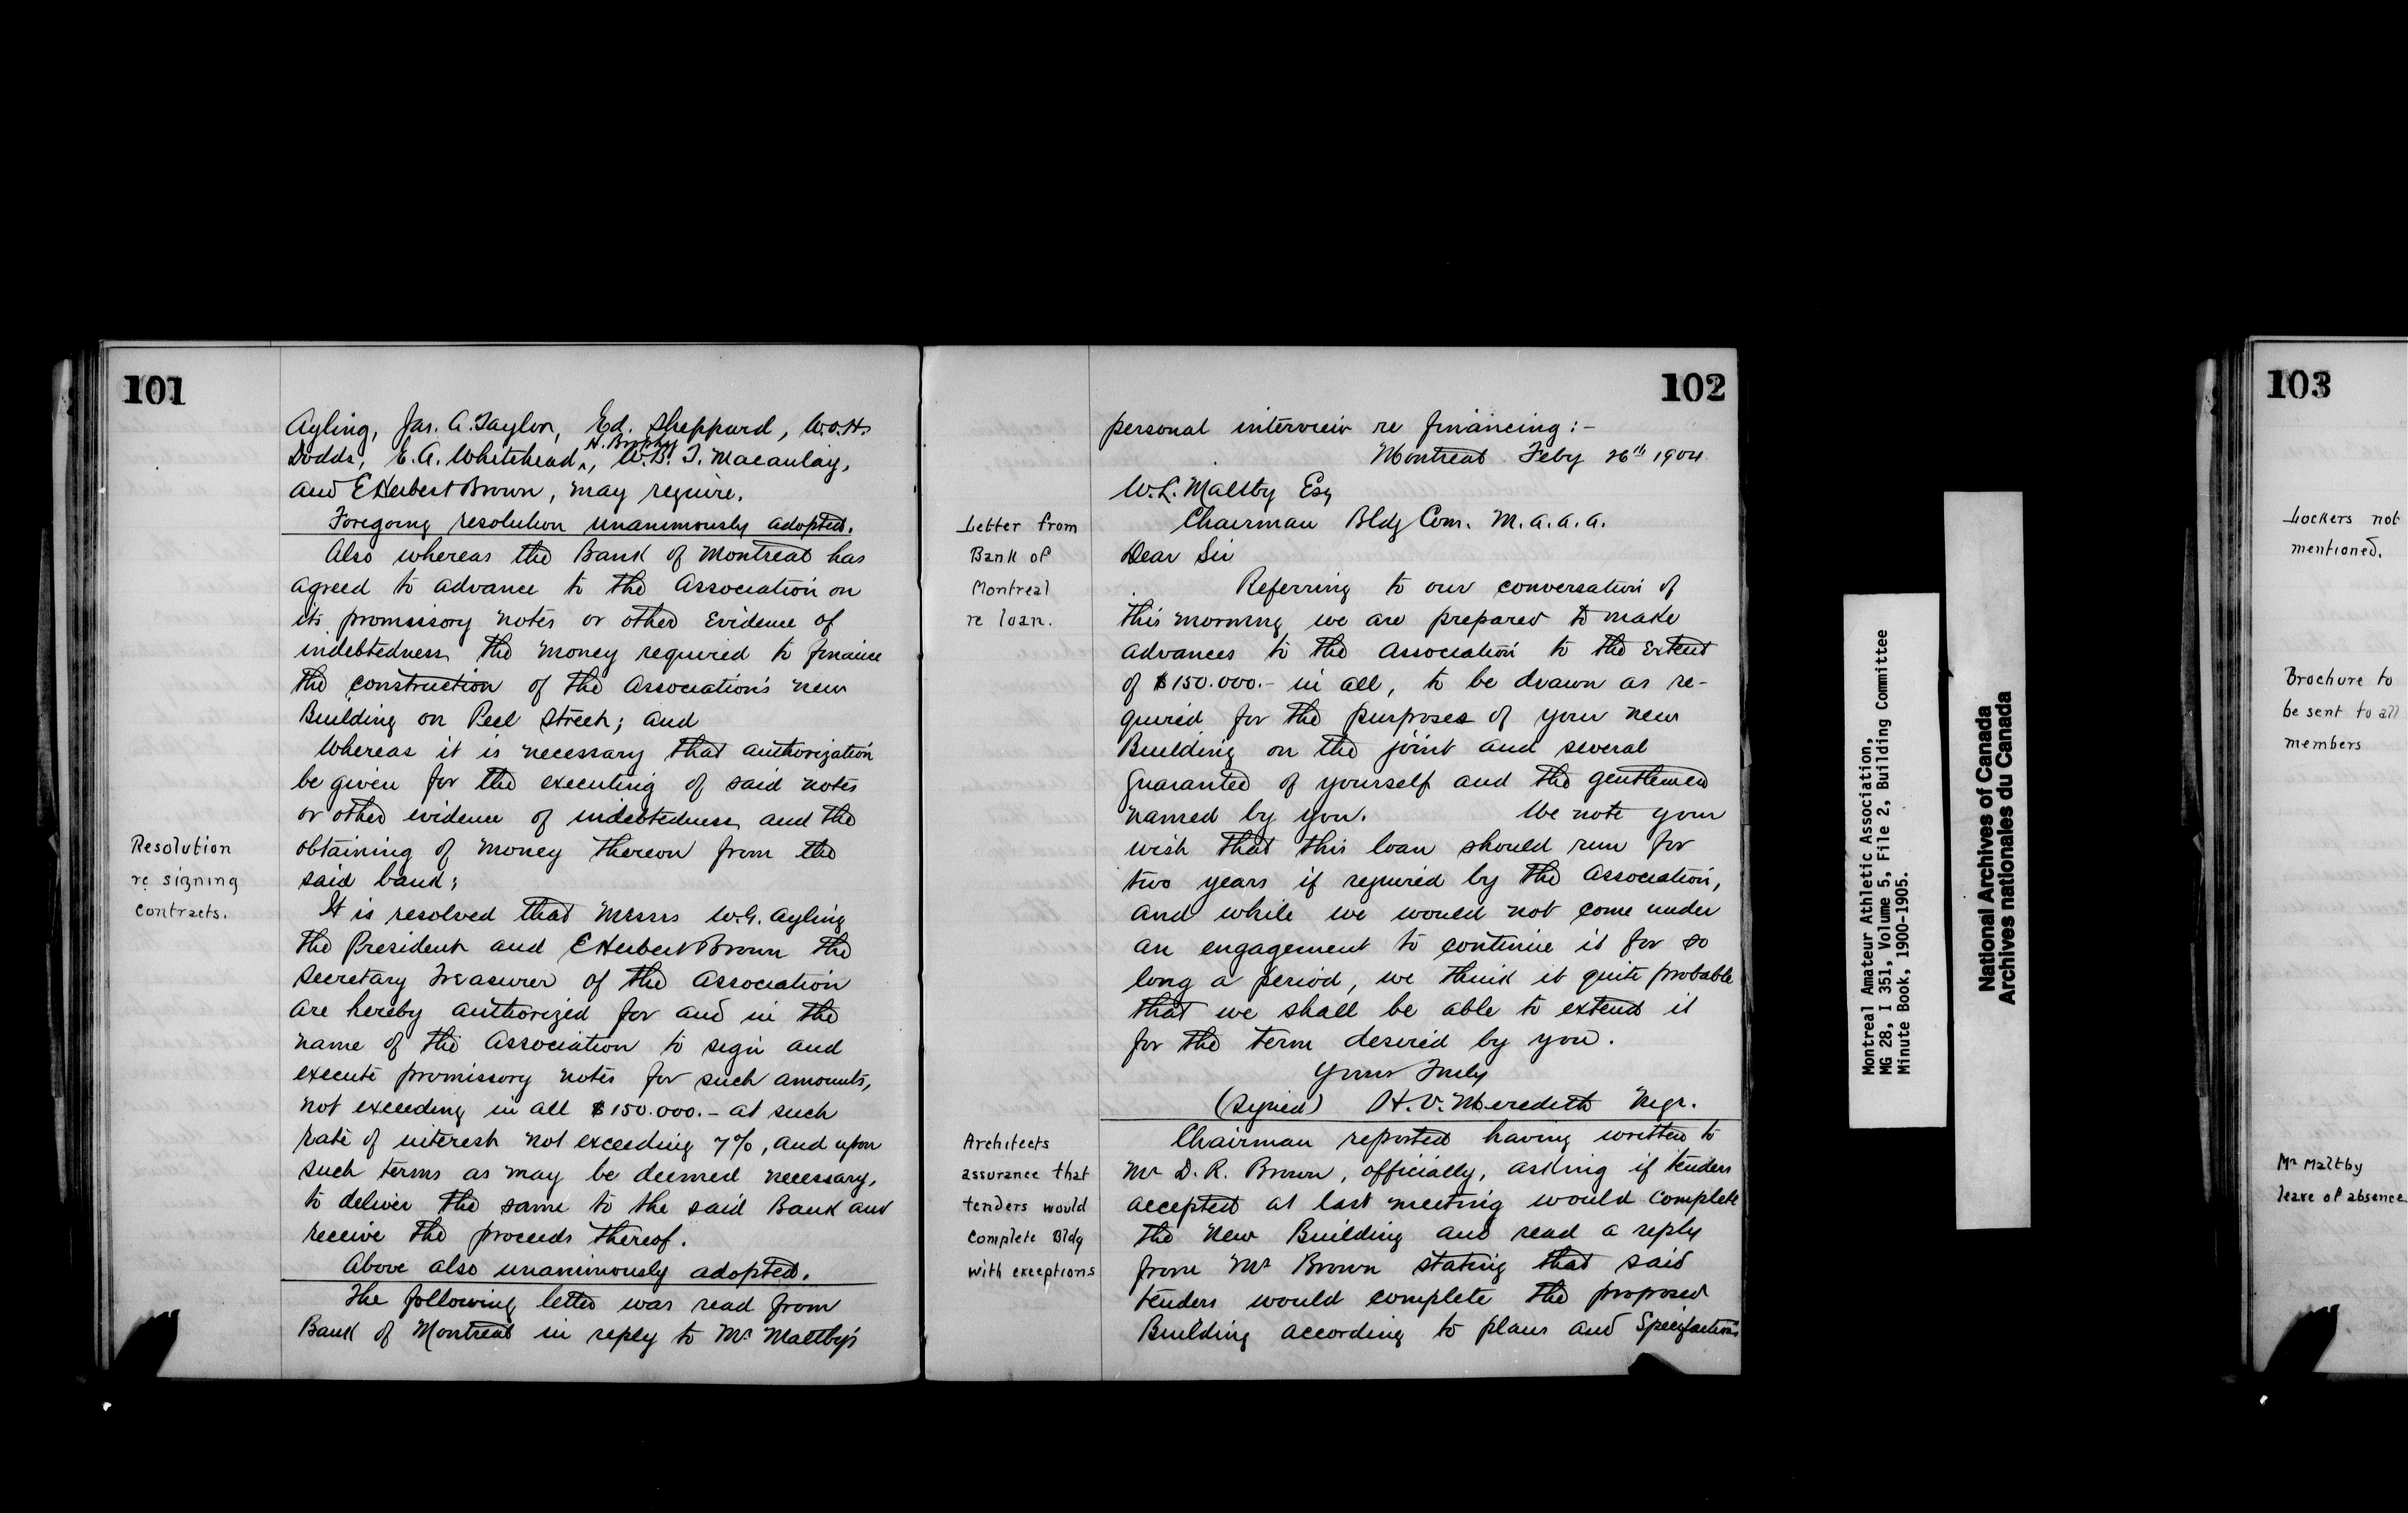 101
Ayling, Jas. A. Taylor, Ed. Sheppard, W.O.H.
Dodds, E.A. Whitehead, H. Brophy, W.B.T. Macaulay,
and E Herbert Brown, may require.
Foregoing resolution unanimously adopted.
Also whereas the Bank of Montreal has
agreed to advance to the Association on
its promissory notes or other Evidence of
indebtedness the money required to finance
the construction of the Association's new
Building on Peel Street; and
Whereas it is necessary that authorization
be given for the executing of said notes
or other evidence of indebtedness and the
Resolution
re signing
contracts.
obtaining of money thereon from the
said bank;
It is resolved that Messrs W.G. Ayling
the President and E Herbert Brown the
Secretary Treasurer of the Association
are hereby authorized for and in the
name of the Association to sign and
execute promissory notes for such amounts,
not exceeding in all $150.000.- at such
rate of interest not exceeding 7%, and upon
such terms as may be deemed necessary,
to deliver the same to the said Bank and
receive the proceeds thereof.
Above also unanimously adopted.
The following letter was read from
Bank of Montreal in reply to Mr Maltby's
102
personal interview re financing:-
Montreal Feby 26th 1904
W.L. Maltby Esq
Chairman Bldg Com. M.A.A.A.
Letter from
Bank of
Montreal
re loan.
Dear Sir
Referring to our conversation of
this morning we are prepared to make
advances to the Association to the Extent
of $150.000.- in all, to be drawn as re-
quired for the purposes of your new
Building on the joint and several
guarantee of yourself and the gentlemen
named by you. We note your
wish that this loan should run for
two years if required by the Association,
and while we would not come under
an engagement to continue it for so
long a period, we think it quite probable
that we shall be able to extend it
for the term desired by you.
Yours Truly
(Signed) H.V. Meredith Mgr.
Architects
assurance that
tenders would
complete Bldg
with exceptions
Chairman reported having written to
Mr D.R. Brown, officially, asking if tenders
accepted at last meeting would complete
the New Building and read a reply
from Mr Brown stating that said
tenders would complete the proposed
Building according to plans and Specifactions
Montreal Amateur Athletic Association,
MG 28, I 351, Volume 5, File 2, Building Committee
Minute Book, 1900-1905.
National Archives of Canada
Archives nationales du Canada
103
Lockers not
mentioned.
Brochure to
be sent to all
members
Mr Maltby
leave of absence